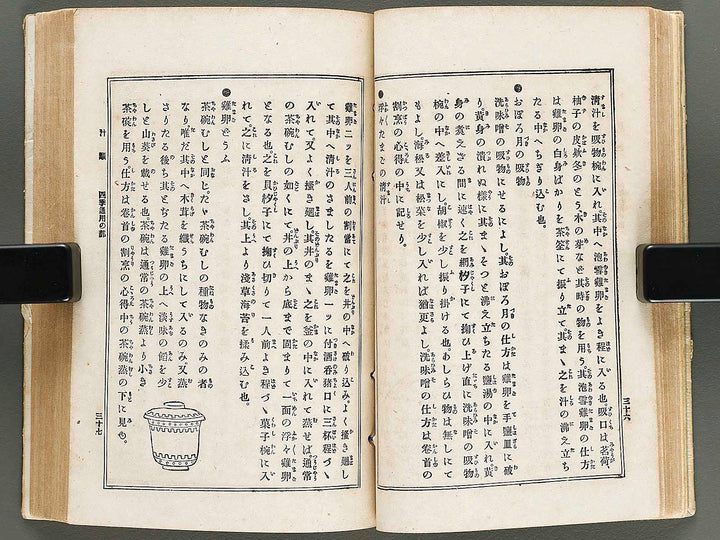 清汁を吸物椀に入れ其中へ泡雪雞卵をよき程に入る也。吸口は茗荷
柚子の皮欵冬のとう木の芽など其時の物を用う。其泡雪雞卵の仕方
は雞卵の白身ばかりを茶筌にて振り立て其まゝ之を汁の沸え立ち
たる中へちぎり込む也。
おぼろ月の吸物
洗味噌の吸物にせるによし。其おぼろ月の仕方は雞卵を手鹽皿に破
り、黄身の潰れぬ樣に其まゝそつと沸え立ちたる鹽湯の中に入れ黄
身の煑えざる間に速く之を網杓子にて掬ひ上げ直に洗味噌の吸物
椀の中へ差入にし胡椒を少し振り掛ける也。あしらひ物は無しにて
もよし。海松又は松菜を少し入れば猶更よし。洗味噌の仕方は卷首の
割烹の心得の中に記せり。
浮々たまごの清汁
三十六
雞卵二ッを三人前の割當にて之を丼の中へ破り込み。よく攪き廻し
て其中へ清汁のさましたるを雞卵一ッに付酒呑猪口に三杯程づゝ
入れて又よく攪き廻し其丼のまゝ之を釜の中に入れて蒸せば通常
の茶碗むしの如くにて丼の上から底まで固まりて一面の浮々雞卵
となる也之を貝杓子にて掬ひ切りて一人前よき程づゝ菓子椀に入
れて之に清汁をさし其上より淺草海苔を揉み込む也。
雞卵どうふ
茶碗むしと同じ。たゞ茶碗むしの種物なきのみの者
なり唯だ其中へ木茸を纖うちにして入るのみ又蒸
さりたる後ち其とぢたる雞卵の上へ淡味の餡を少
しと山葵を載せる也茶碗は通常の茶碗蒸より小き
茶碗を用う仕方は卷首の割烹の心得中の茶碗蒸の下に見ゆ。
汁類 四季通用の部
三十七